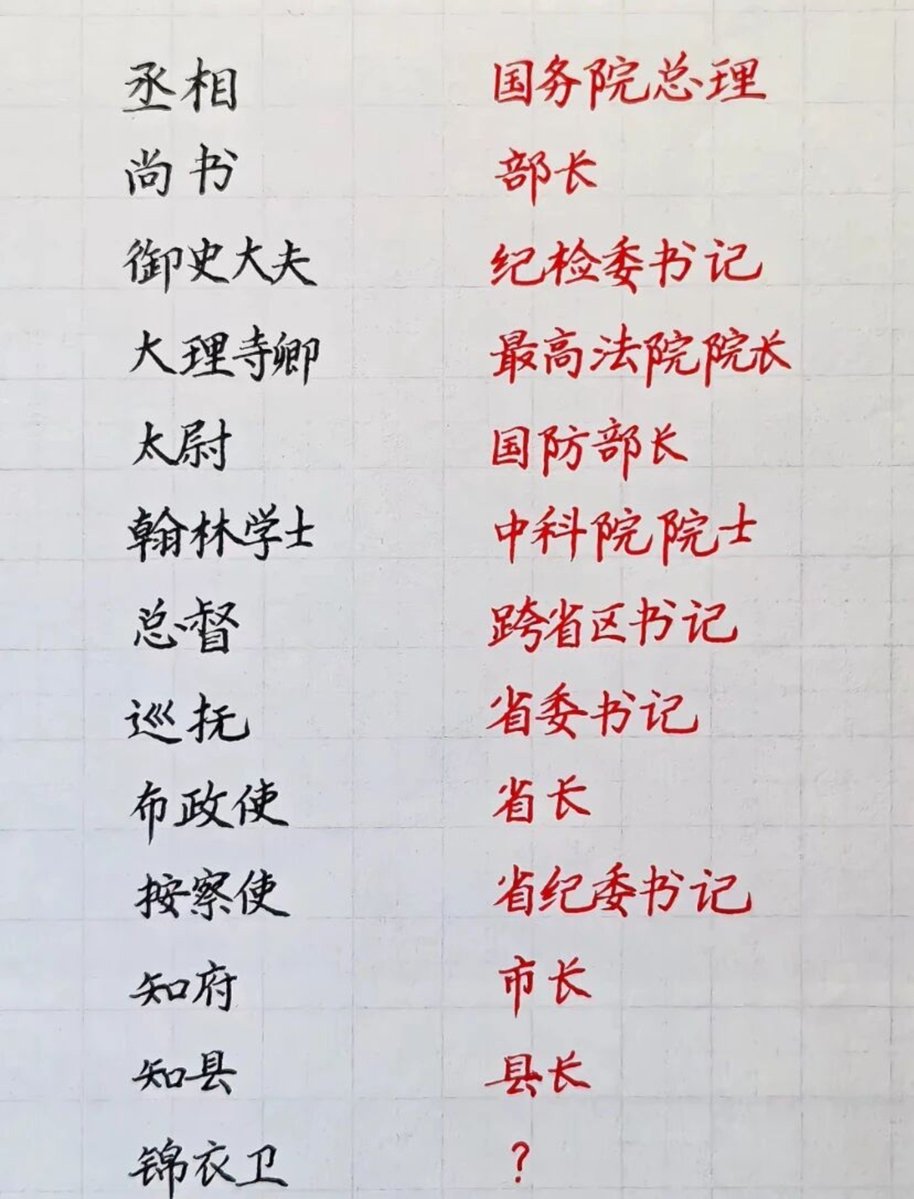 丞相 国务院总理
尚书 部长
御史大夫 纪检委书记
大理寺卿 最高法院院长
太尉 国防部长
翰林学士 中科院院士
总督 跨省区书记
巡抚 省委书记
布政使 省长
按察使 省纪委书记
知府 市长
知县 县长
锦衣卫 ?